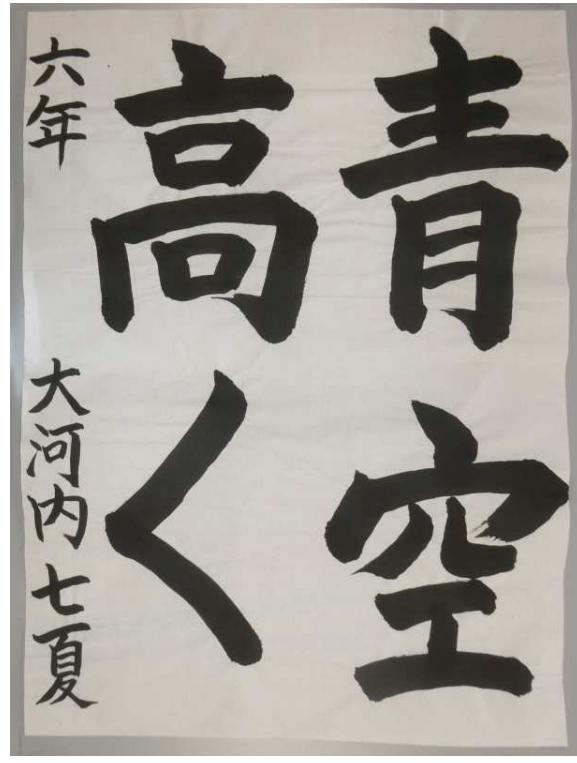 青空
高く
六年 大河内七夏